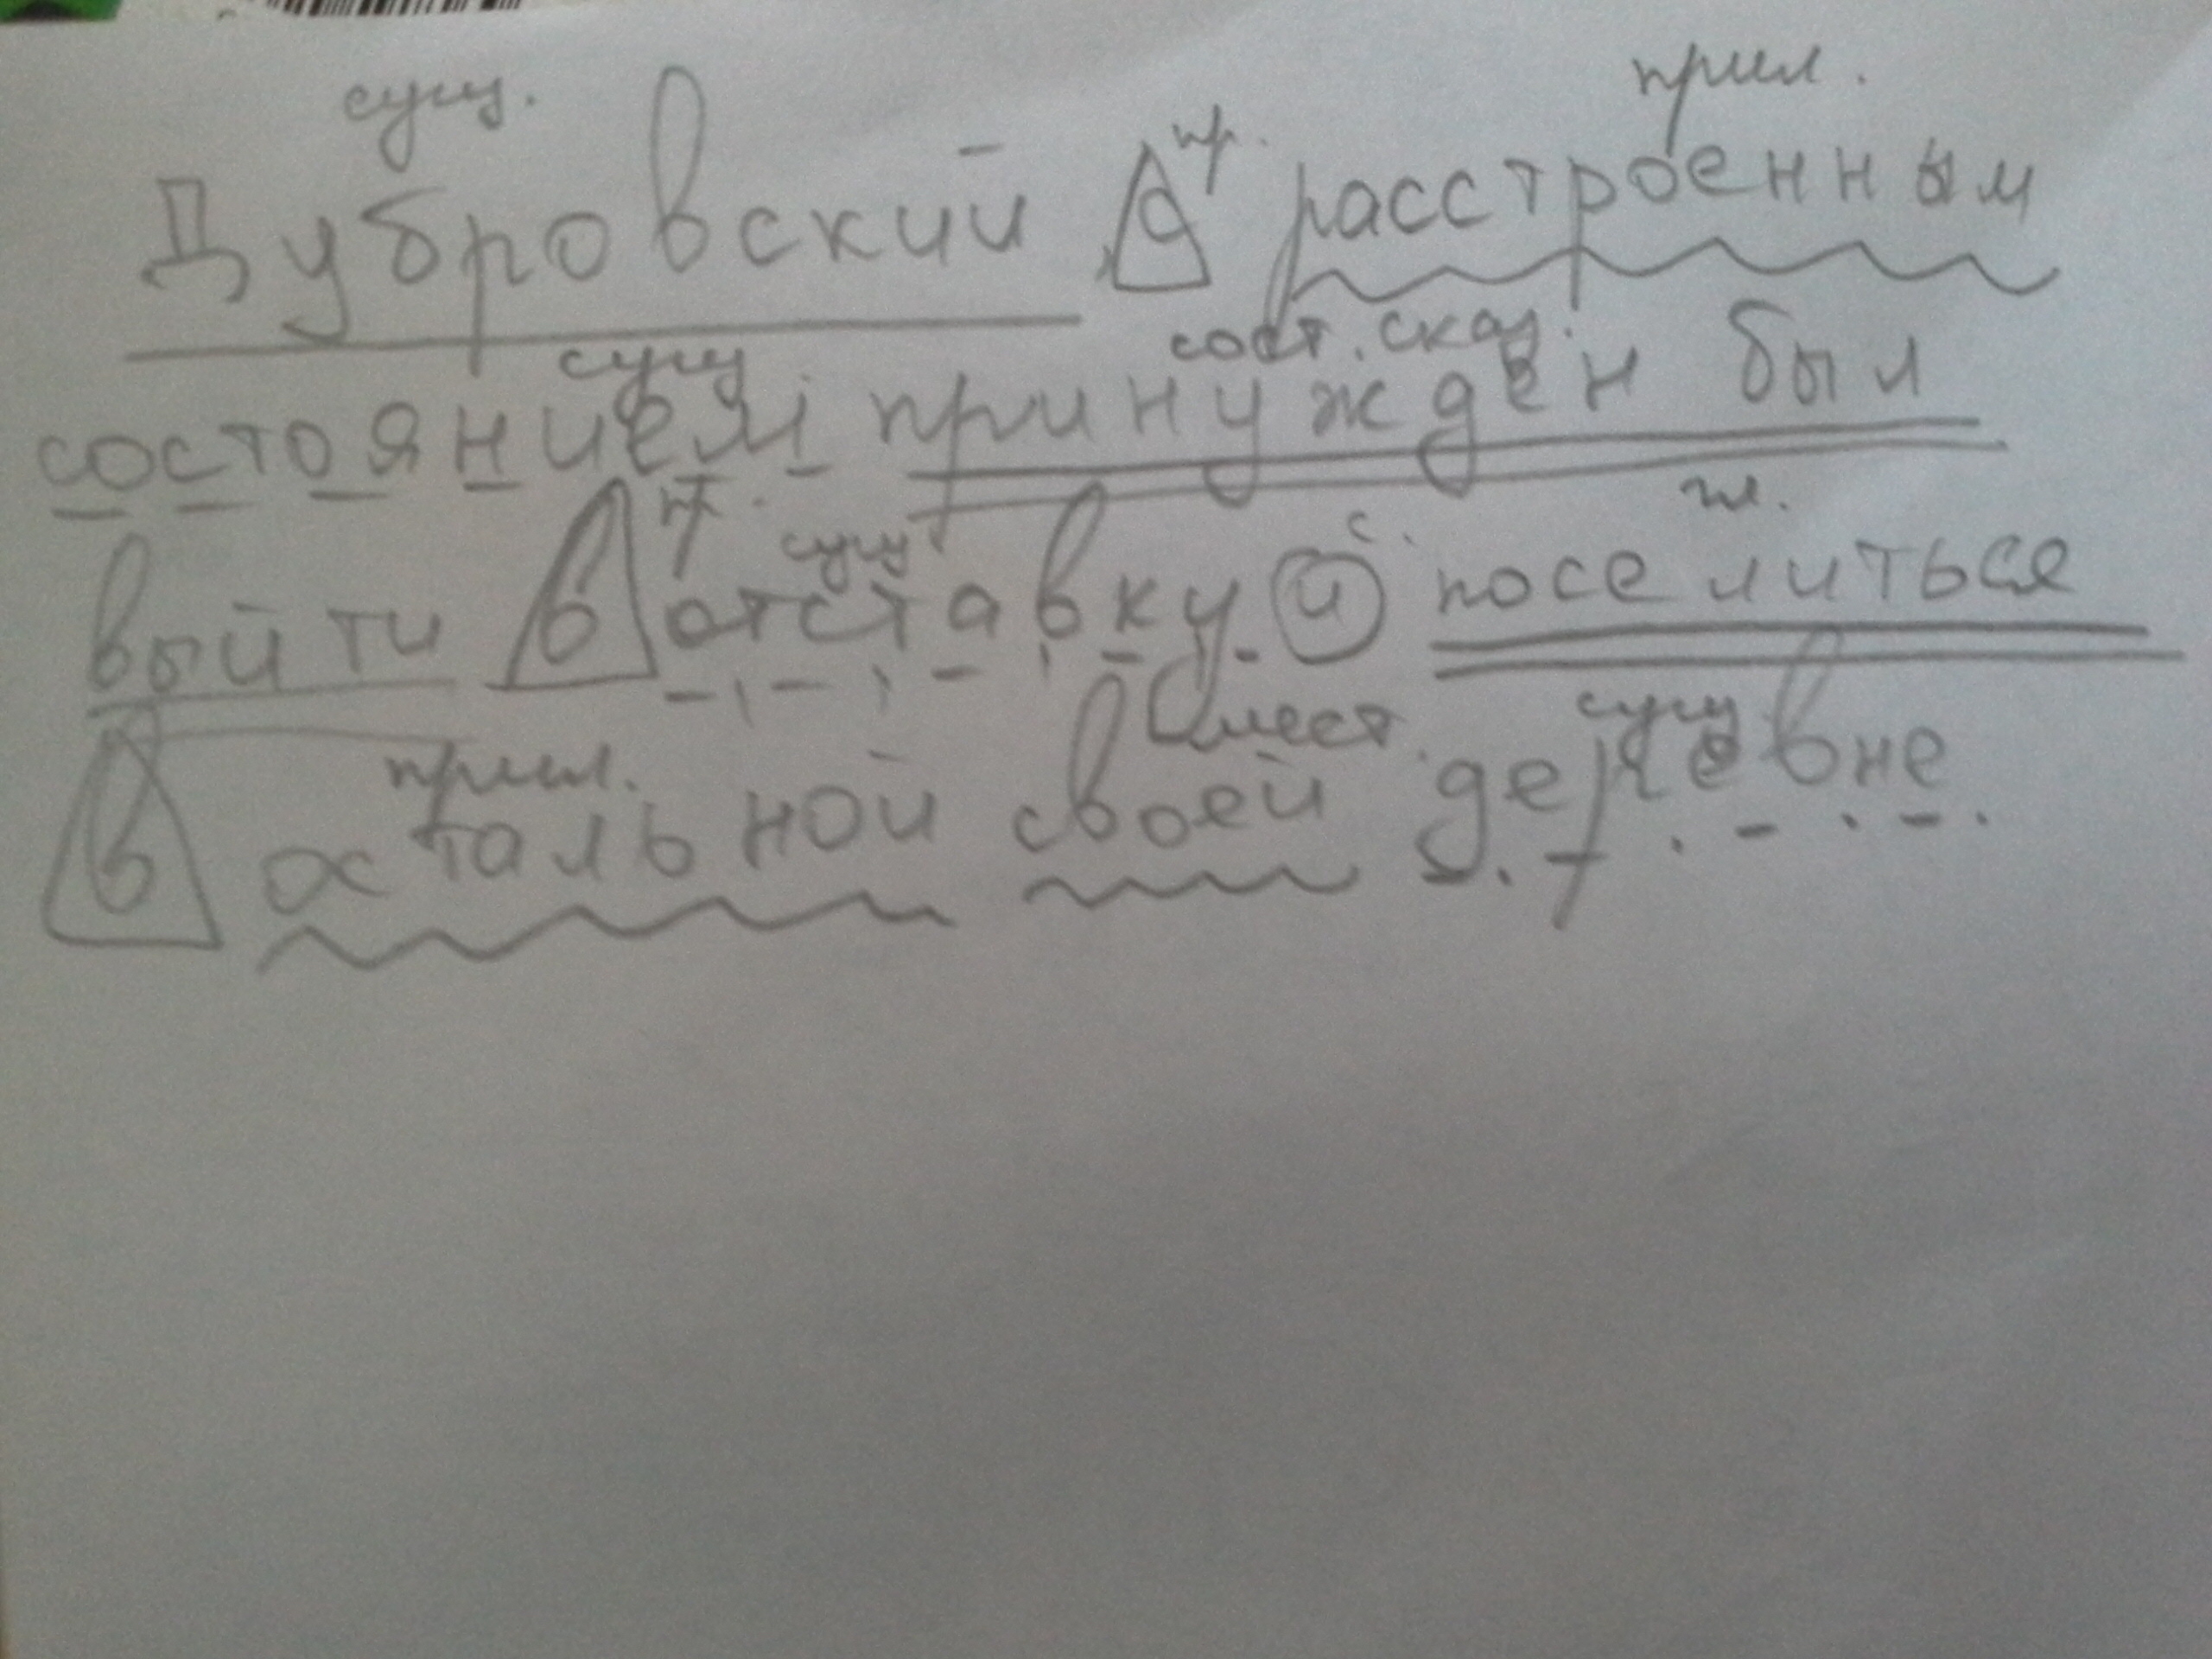 сущ. пр. прил.
Дубровский с расстроенным
сущ. сост. сказ.
состоянием принужден был
пр. сущ с. гл.
выйти в отставку и поселиться
прил. мест. сущ
в остальной своей деревне